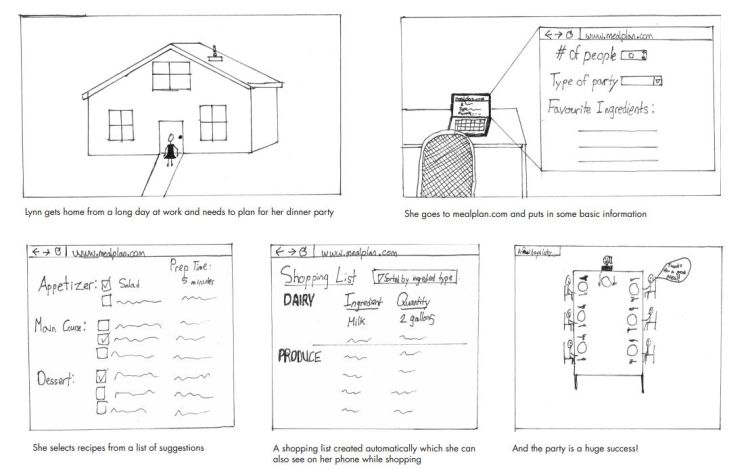 Lynn gets home from a long day at work and needs to plan for her dinner party
← → www.mealplan.com
# of people
Type of party
Favourite Ingredients:
She goes to mealplan.com and puts in some basic information
← → www.mealplan.com
Prep Time:
Appetizer: Salad 5 minutes
Main Course:
Dessert:
She selects recipes from a list of suggestions
← → www.mealplan.com
Shopping List Sorted by ingredient type
DAIRY Ingredient Quantity
Milk 2 gallons
PRODUCE
A shopping list created automatically which she can
also see on her phone while shopping
And the party is a huge success!